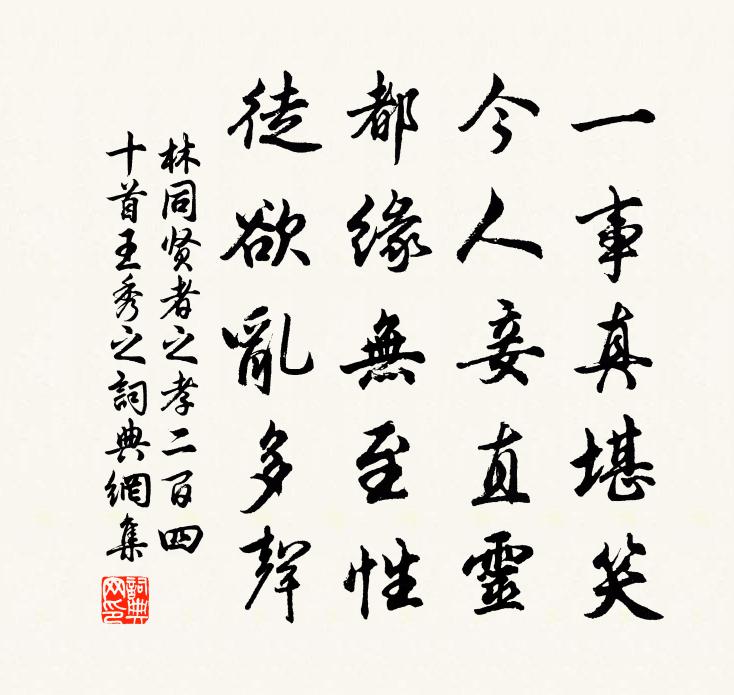 一事真堪笑
今人妾直靈
都緣無至性
徒欲亂多聲
林同贤者之孝二百四
十首王秀之詞典網集
詞典
网印